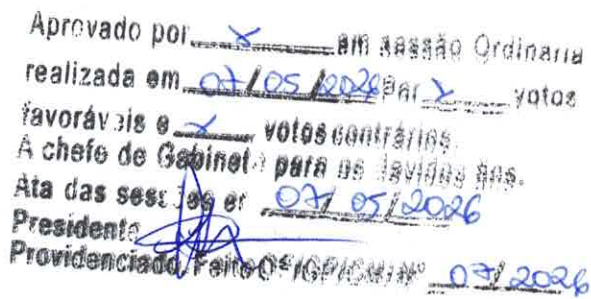 Aprovado por x em sessão Ordinaria
realizada em 07/05/2026 Por x votos
favoráveis e x votos contrários.
A chefe de Gabinete para os devidos fins.
Ata das sessões em 07/05/2026
Presidente
Providenciado, Feito Of/GP/CM/Nº 07/2026